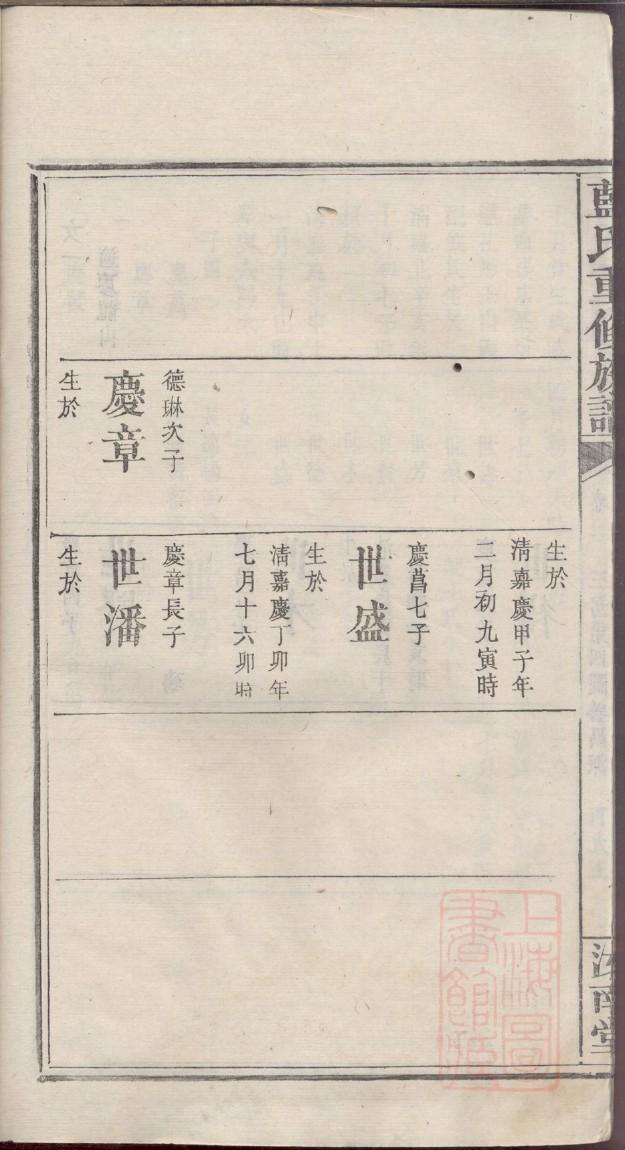 藍氏重修族譜
汝南堂
德琳次子
慶章
生於
生於
清嘉慶甲子年
二月初九寅時
慶菖七子
世盛
生於
清嘉慶丁卯年
七月十六卯時
慶章長子
世潘
生於
上海圖
書館藏